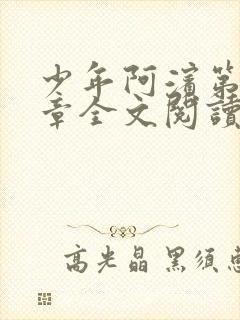 少年阿濱第
章全文閱讀
高光晶 黑須惠